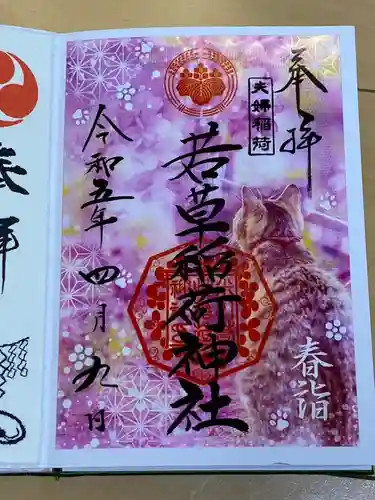 奉拝
夫婦稲荷
若草稲荷神社
令和五年四月九日
春詣